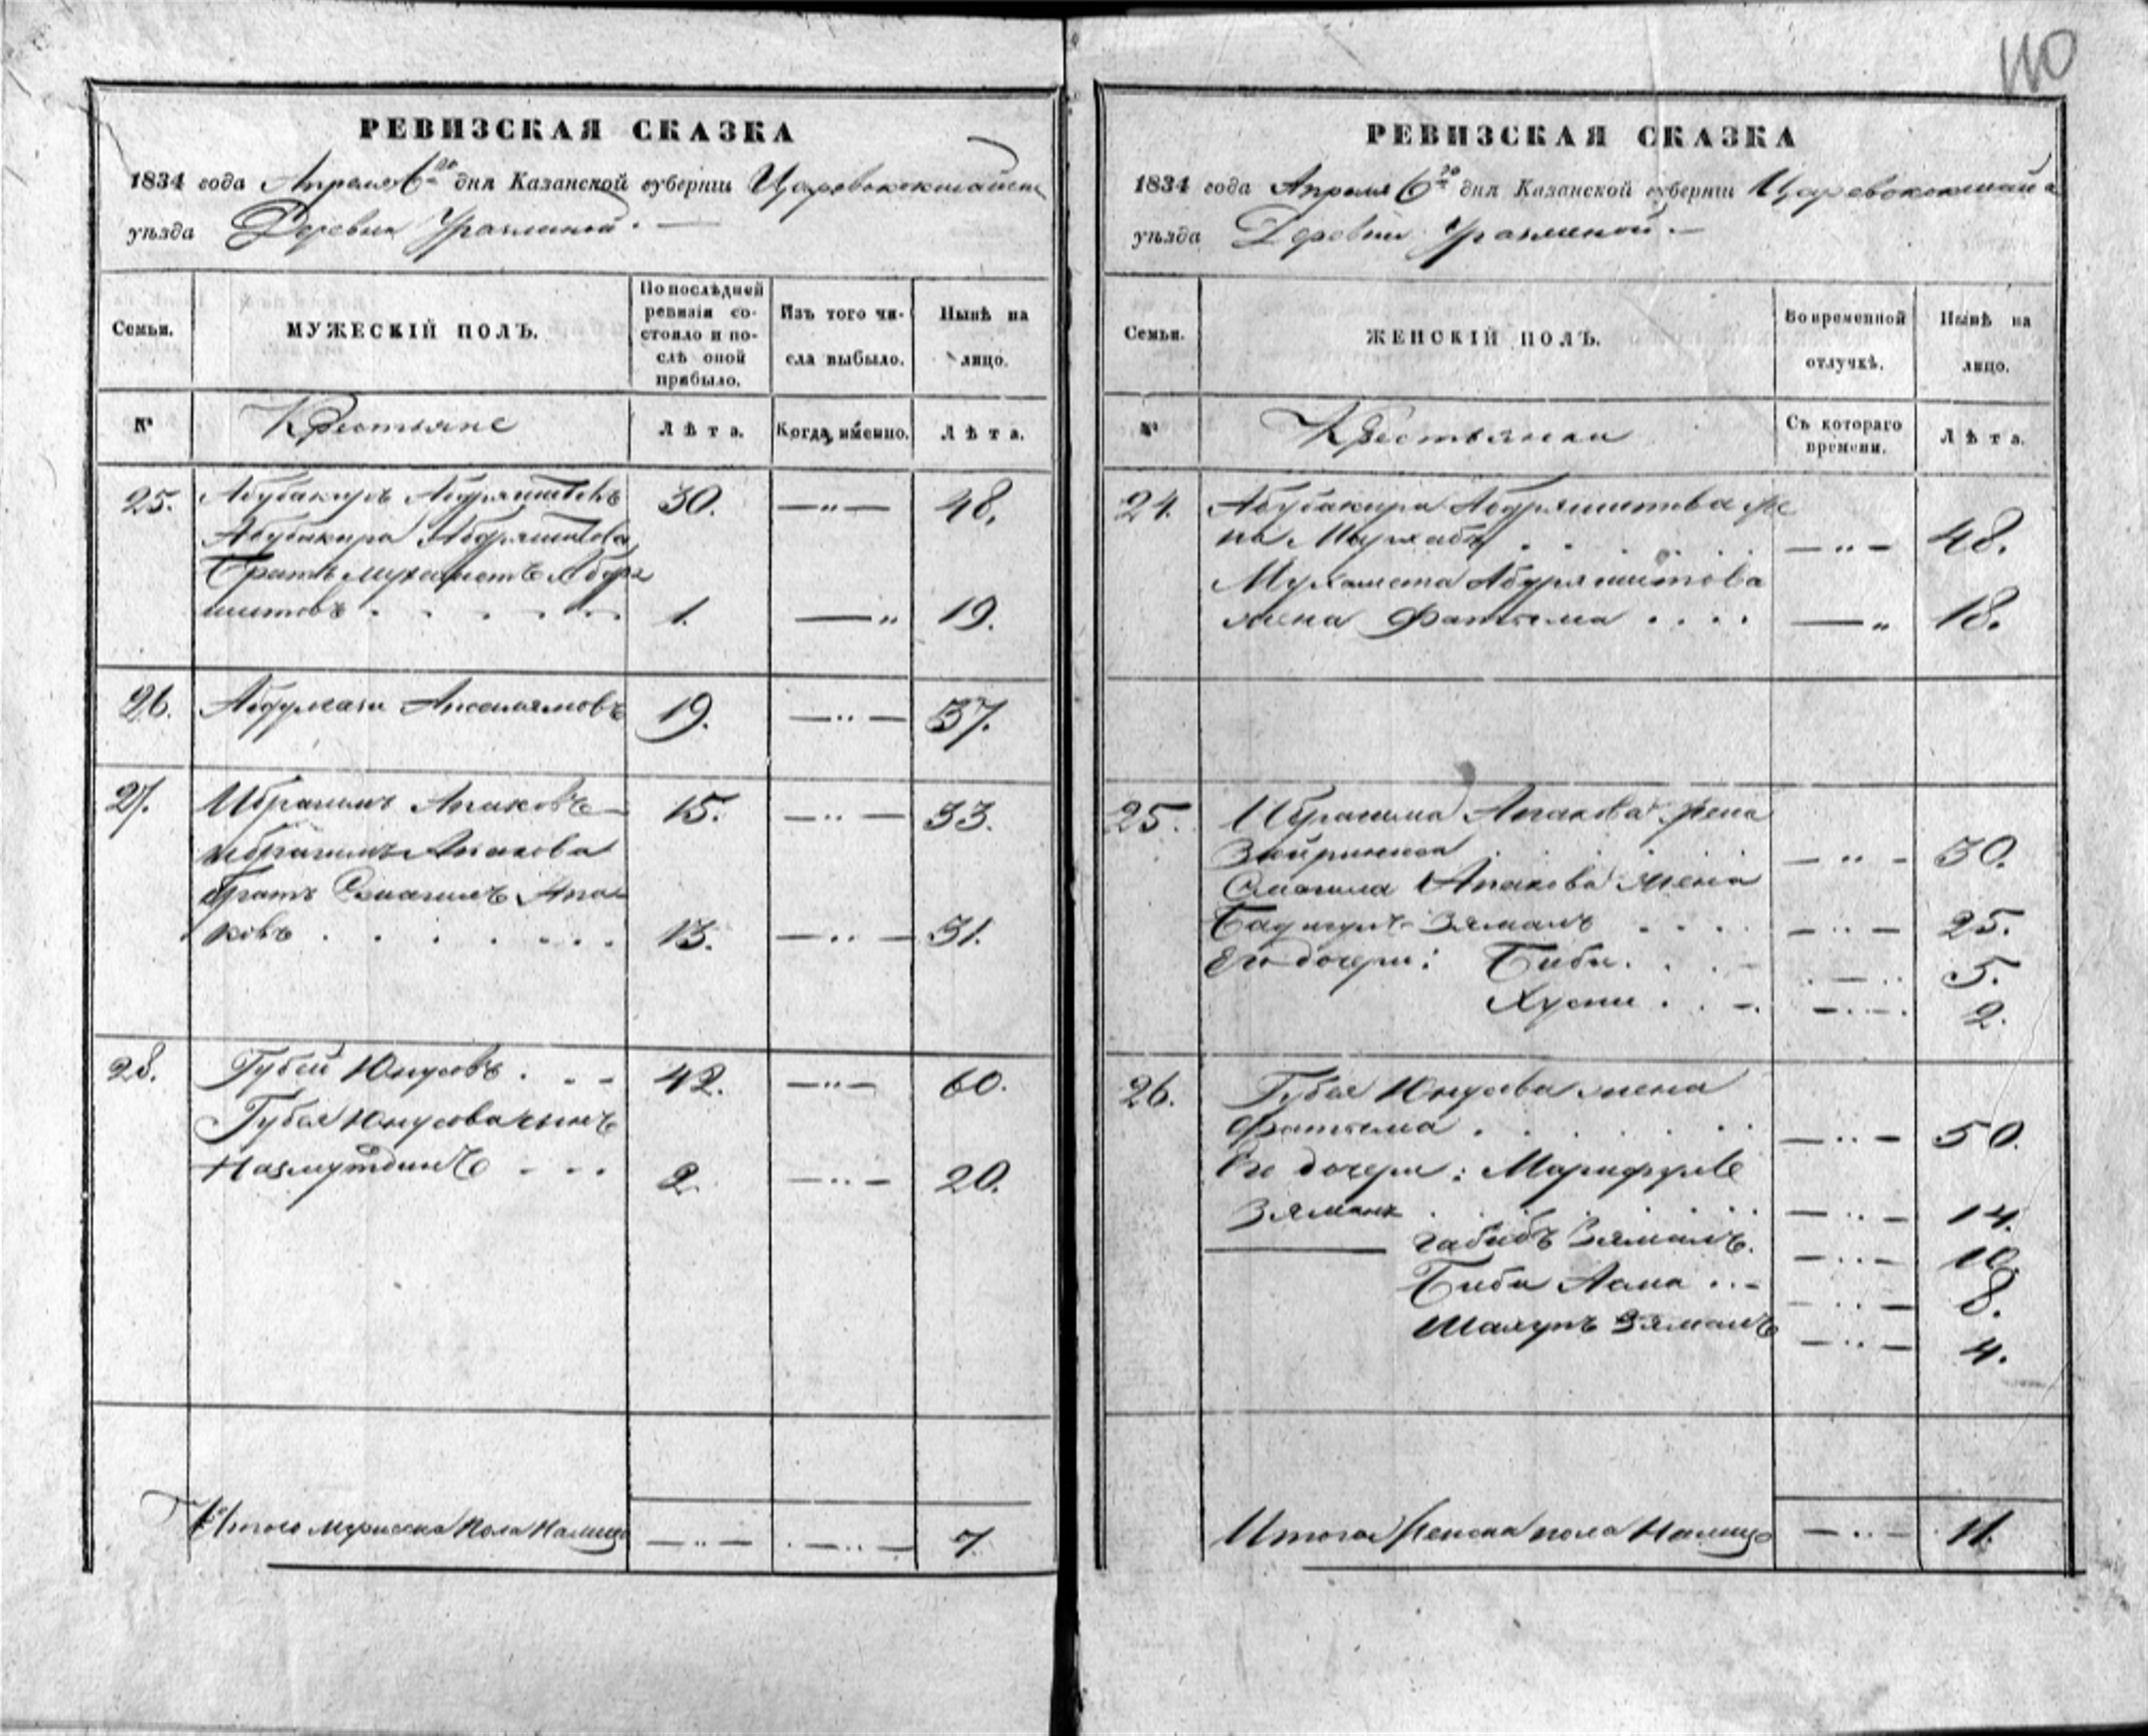 110
РЕВИЗСКАЯ СКАЗКА
1834 года Апреля 6го дня Казанской губернии Царевококшайска
уѣзда Деревни
Семьи.
МУЖЕСКІЙ ПОЛЪ.
По послѣдней ревизіи состояло и послѣ оной прибыло.
Изъ того числа выбыло.
Нынѣ на лицо.
№
Крестьяне
Лѣта.
Когда именно.
Лѣта.
25. Абубакиръ Абдряшитовъ 30. —"— 48.
Абубакира Абдряшитова
братъ Мухаметъ Абдря
шитовъ . . . . . 1. —" 19.
26. Абдулгази 19. —"— 37.
27. Ибрагимъ Апаковъ 15. —"— 33.
Ибрагима Апакова
братъ Смагилъ Апа
ковъ . . . . . . 13. —"— 31.
28. Губей Юнусовъ . - - 42. —"— 60.
Губея Юнусова сынъ
Назмутдинъ - - - 2. —"— 20.
Итого мужеска пола налицо —"— —"— 7.
РЕВИЗСКАЯ СКАЗКА
1834 года Апреля 6го дня Казанской губернии Царевококшайска
уѣзда Деревни
Семьи.
ЖЕНСКІЙ ПОЛЪ.
Во временной отлучкѣ.
Нынѣ на лицо.
№
Крестьянки
Съ котораго времени.
Лѣта.
24. Абубакира Абдряшитова же
на . . . . —"— 48.
Мухамета Абдряшитова
жена Фатьма . . . . —" 18.
25. Ибрагима Апакова жена
. . . . —"— 30.
Смагила Апакова жена
Зямалъ . . . . —"— 25.
Его дочери: Биби . . . —"— 5.
Хусни . . - —"— 2.
26. Губея Юнусова жена
Фатьма . . . . . . —"— 50.
Его дочери:
Зямалъ . . . . . —"— 14.
Габибъ Зямалъ. —"— 10.
Биби Асма . . - —"— 8.
Зямалъ —"— 4.
Итого женска пола налицо —"— 11.